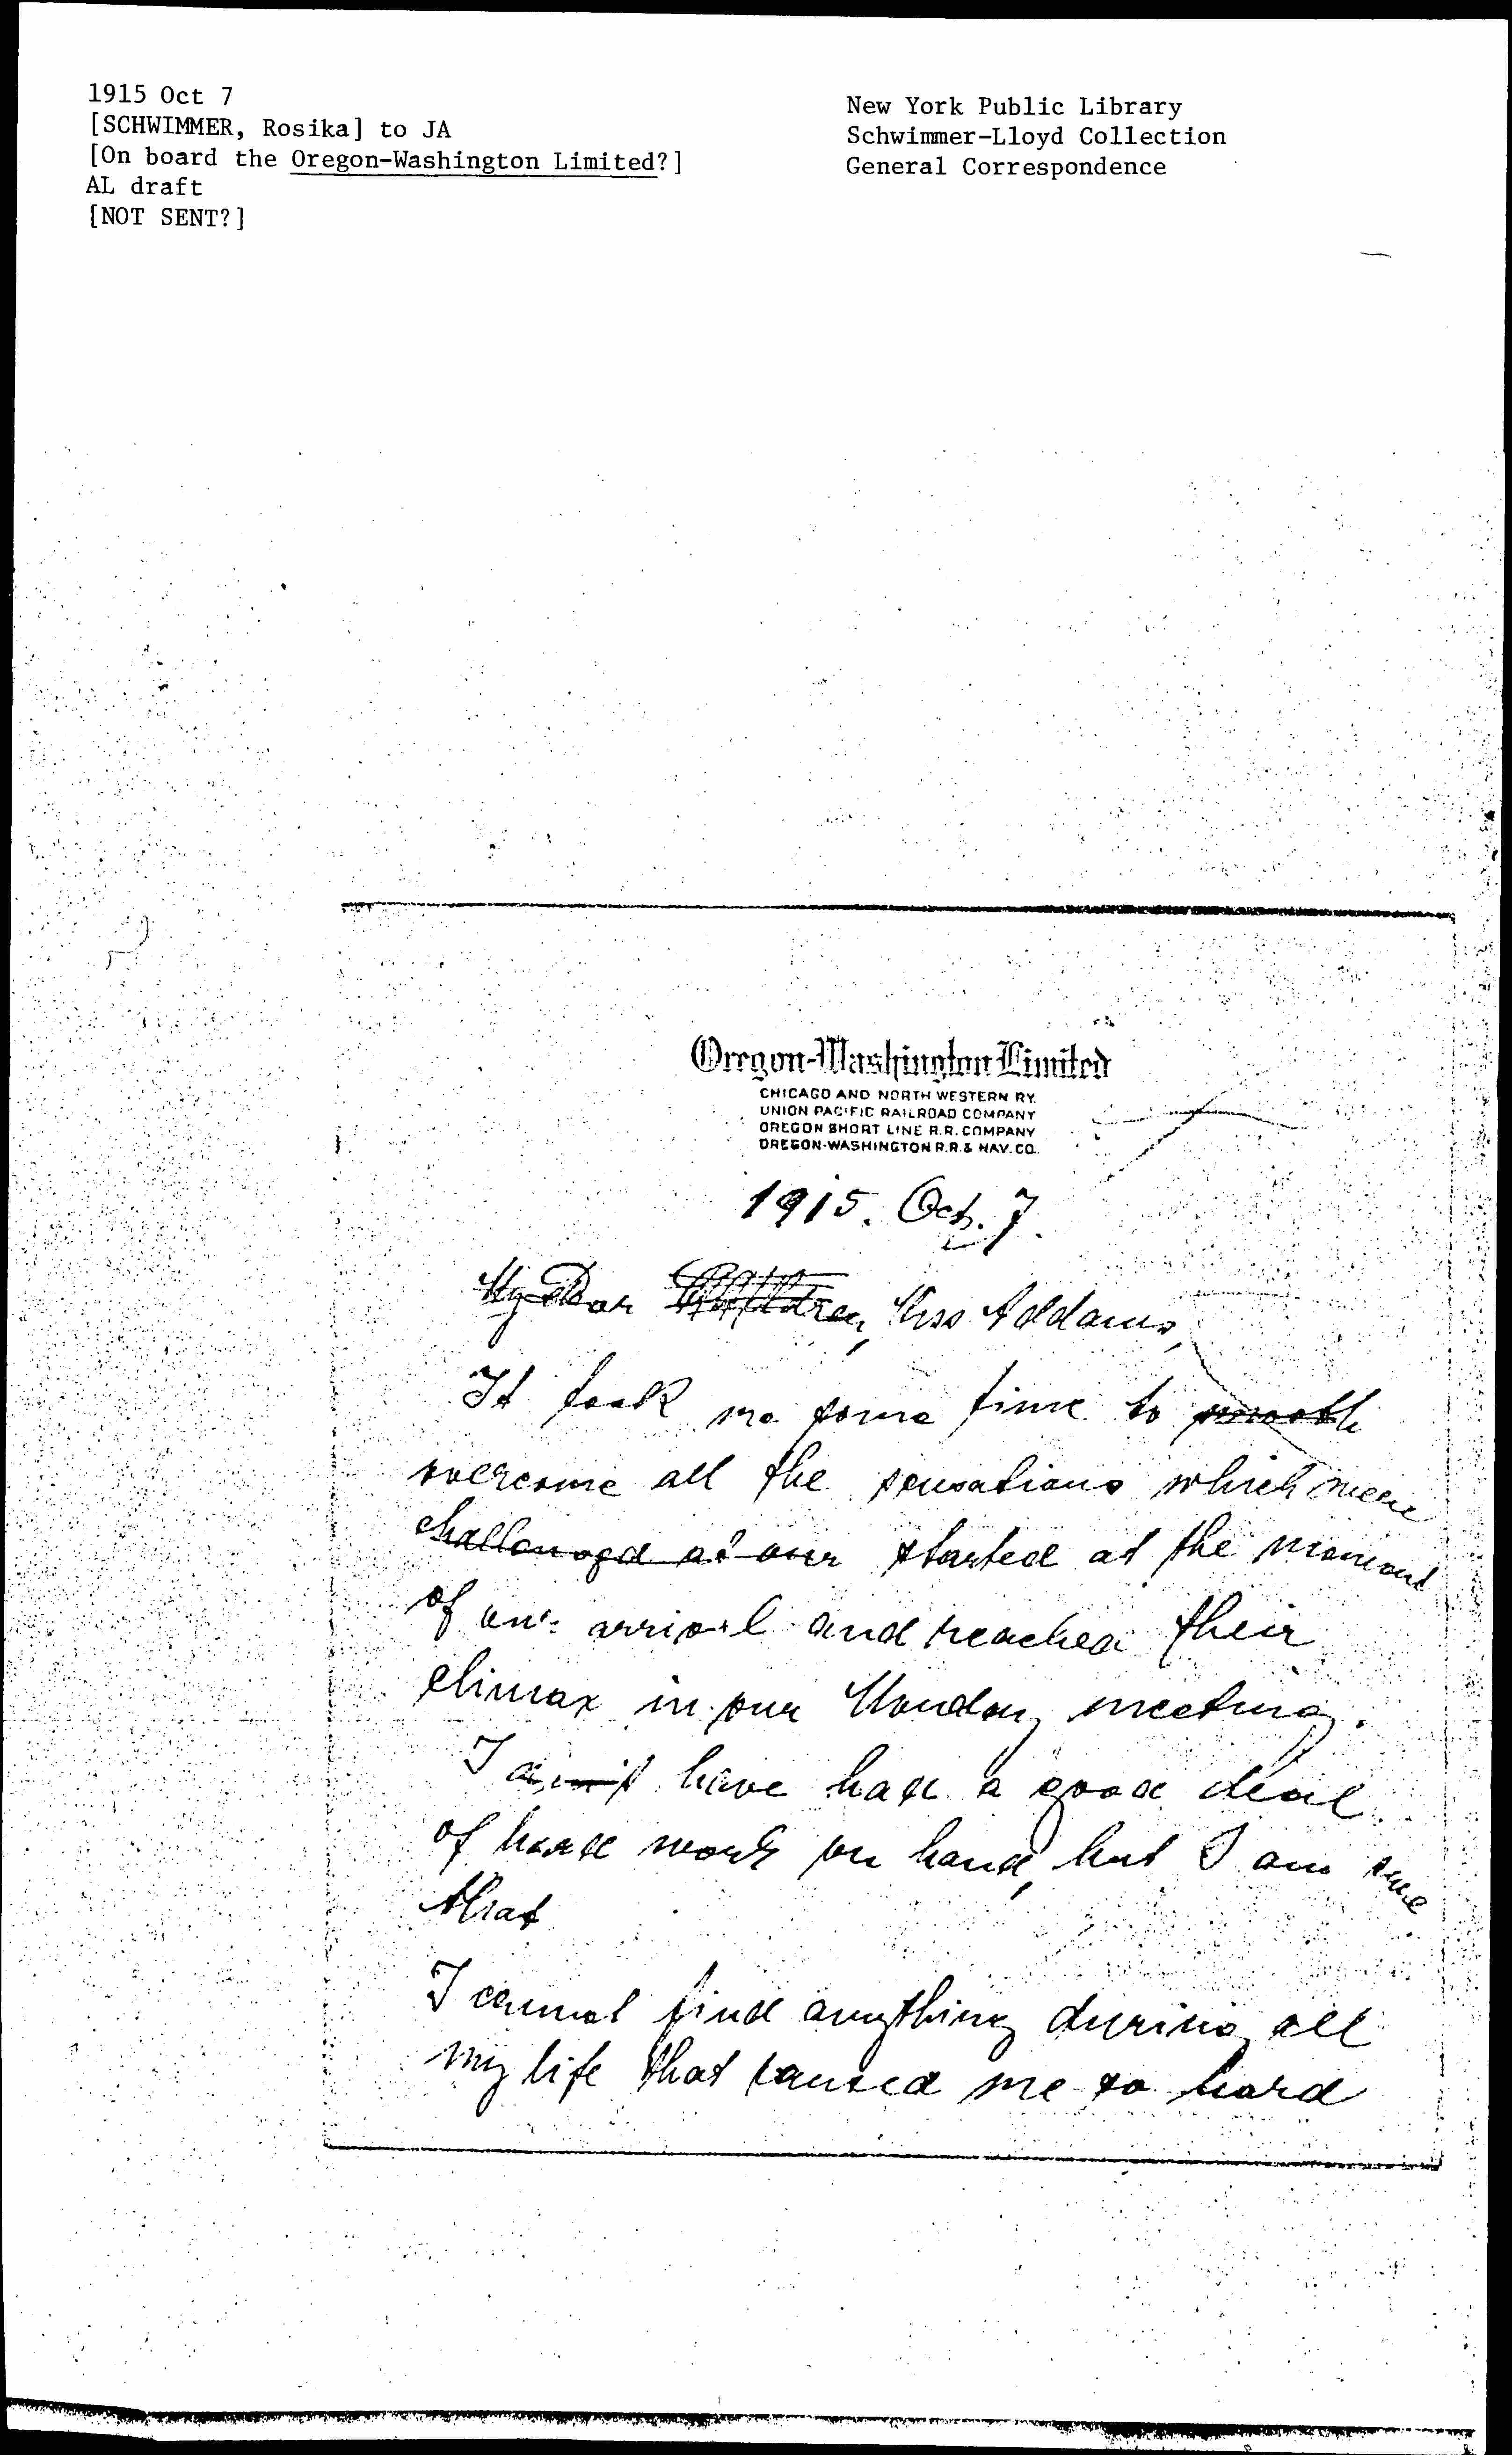 1915 Oct 7
[SCHWIMMER, Rosika] to JA
[On board the Oregon-Washington Limited?]
AL draft
[NOT SENT?]
New York Public Library
Schwimmer-Lloyd Collection
General Correspondence
Oregon-Washington Limited
CHICAGO AND NORTH WESTERN RY.
UNION PACIFIC RAILROAD COMPANY
OREGON SHORT LINE R.R. COMPANY
OREGON-WASHINGTON R.R. & NAV. CO.
1915. Oct. 7.
My Dear Children, Miss Addams,
It took me some time to smooth
overcome all the sensations which were
challenged at our started at the moment
of our arrival and reached their
climax in our Monday meeting.
I have had a good deal
of hard work on hand, but I am sure
that
I cannot find anything during all
my life that caused me so hard